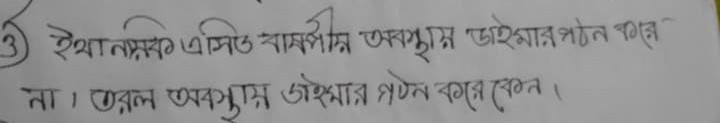 3) ইথানয়িক এসিড বাষ্পীয় অবস্থায় ডাইমার গঠন করে
না। তরল অবস্থায় ডাইমার গঠন করে কেন।